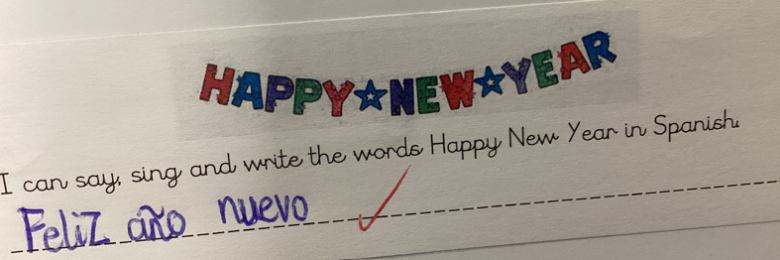 HAPPY☆NEW☆YEAR
I can say, sing and write the words Happy New Year in Spanish.
Feliz año nuevo